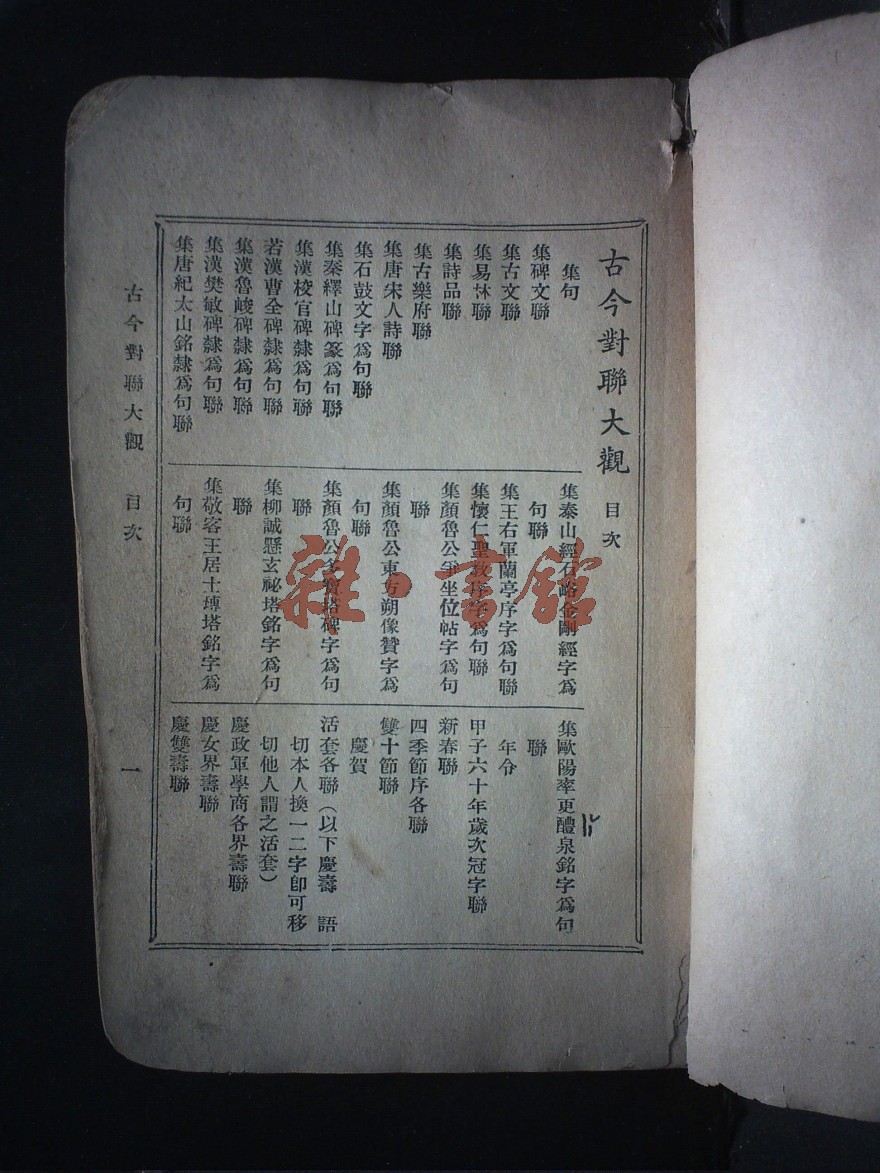 古今對聯大觀 目次
集句
集碑文聯
集古文聯
集易林聯
集詩品聯
集古樂府聯
集唐宋人詩聯
集石鼓文字爲句聯
集秦繹山碑篆爲句聯
集漢校官碑隸爲句聯
若漢曹全碑隸爲句聯
集漢魯峻碑隸爲句聯
集漢樊敏碑隸爲句聯
集唐紀太山銘隸爲句聯
集泰山經石峪金剛經字爲
句聯
集王右軍蘭亭序字爲句聯
集懷仁聖教序字爲句聯
集顏魯公爭坐位帖字爲句
聯
集顏魯公東方朔像贊字爲
句聯
集顏魯公多寶塔碑字爲句
聯
集柳誠懸玄祕塔銘字爲句
聯
集敬客王居士塼塔銘字爲
句聯
集歐陽率更醴泉銘字爲句
聯
年令
甲子六十年歲次冠字聯
新春聯
四季節序各聯
雙十節聯
慶賀
活套各聯（以下慶壽 語
切本人換一二字卽可移
切他人謂之活套）
慶政軍學商各界壽聯
慶女界壽聯
慶雙壽聯
古今對聯大觀 目次 一
雜·書館